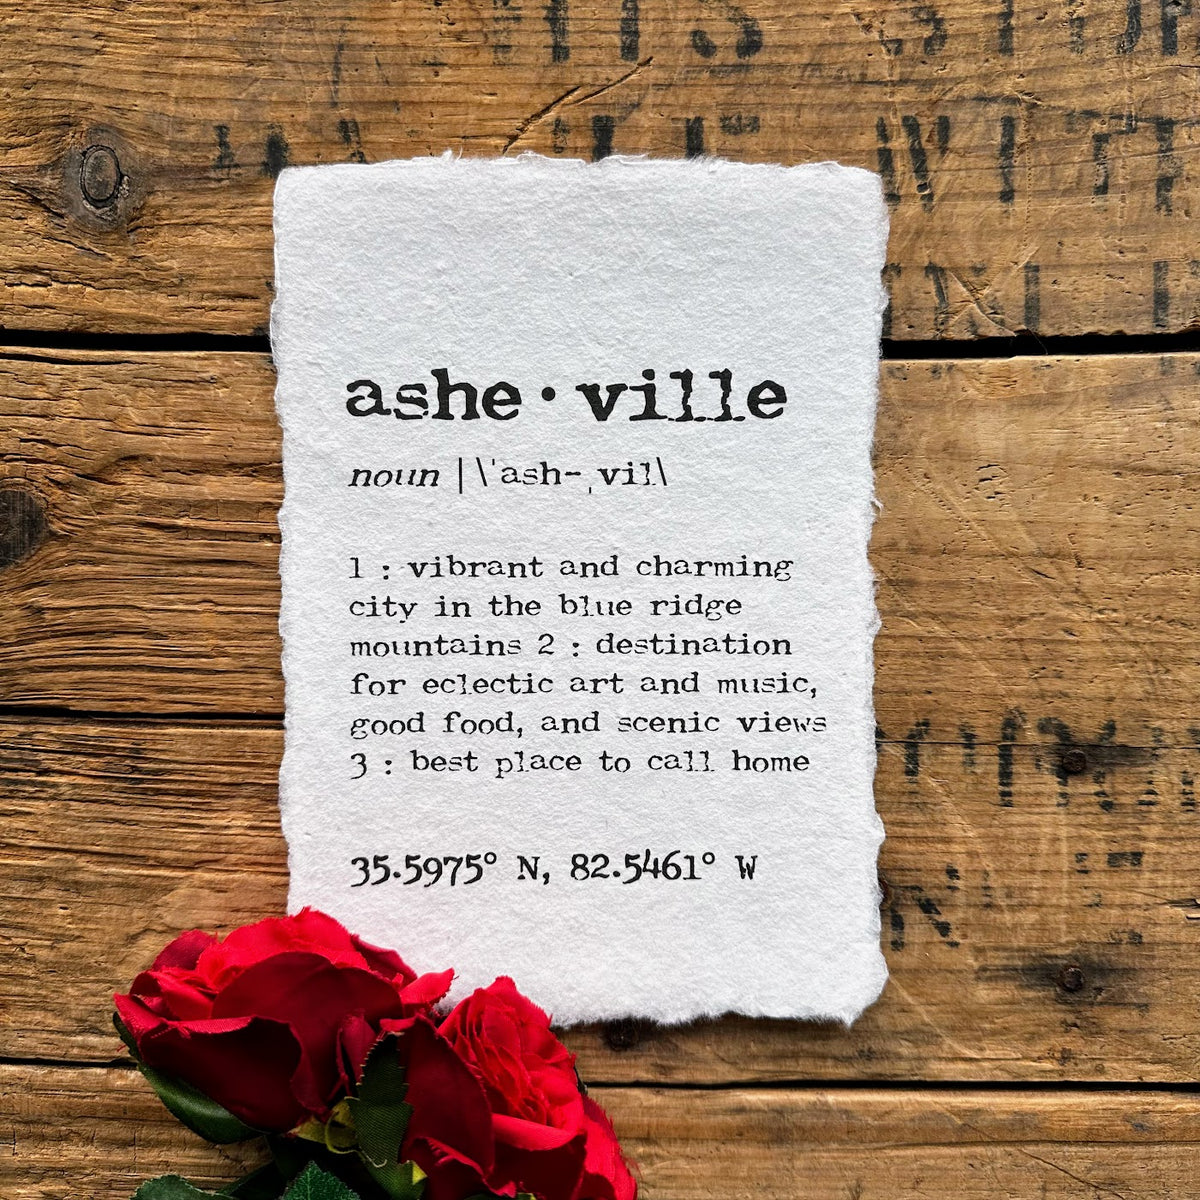 ashe•ville
noun | \ˈash-ˌvil\
1 : vibrant and charming
city in the blue ridge
mountains 2 : destination
for eclectic art and music,
good food, and scenic views
3 : best place to call home
35.5975° N, 82.5461° W